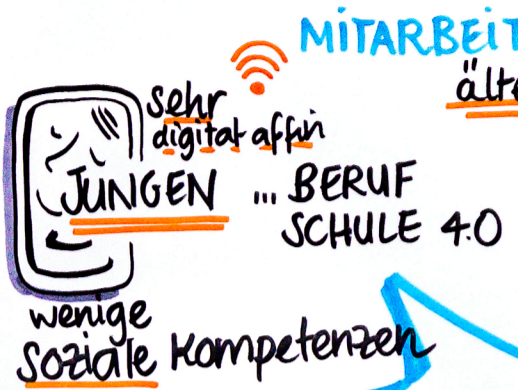 MiTARBEiT
älte
sehr
digital affin
JUNGEN ... BERUF
SCHULE 4.0
wenige
soziale Kompetenzen